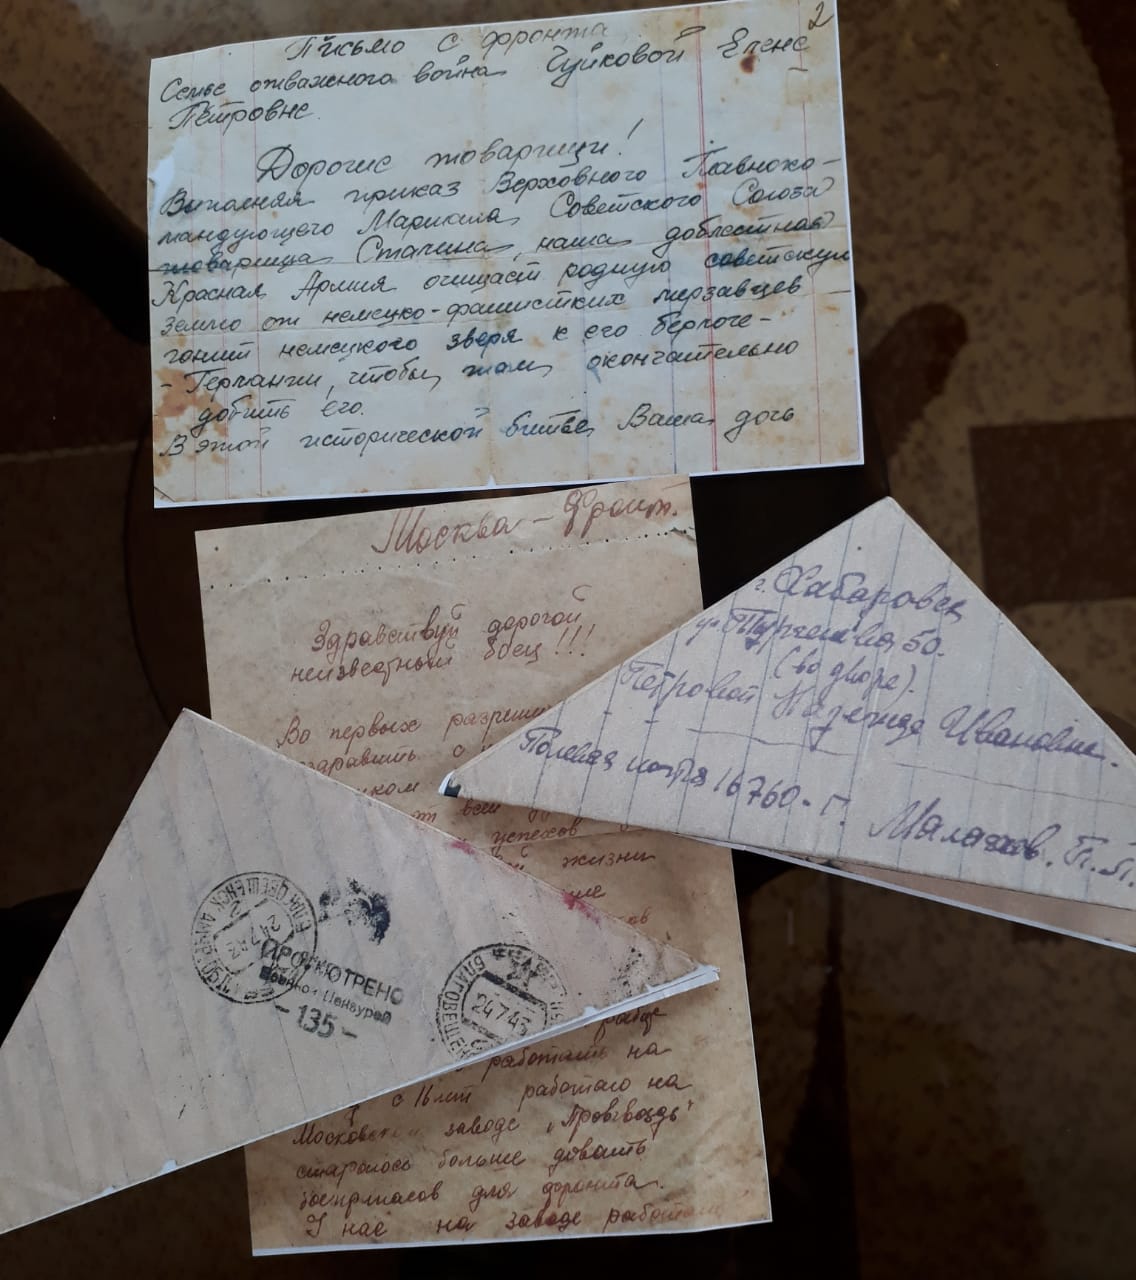 2
Письмо с фронта
Семье отважного война Чуйковой Елене
Петровне.
Дорогие товарищи!
Выполняя приказ Верховного Главноко-
мандующего Маршала Советского Союза
товарища Сталина, наша доблестная
Красная Армия очищает родную советскую
землю от немецко-фашистких мерзавцев
гонит немецкого зверя к его берлоге-
- Германии, чтобы там окончательно
добить его.
В этой исторической битве Ваша дочь
Москва - Фронт.
Здравствуй дорогой
неизвестный боец!!!
Во первых разреши
здравить с
ком
от всей
успехов
жизни
г. Хабаровск
ул. Тургенева 50.
(во дворе).
Петровой Надежде Ивановне.
Полевая почта 16760-г. Малахов. П.П.
24.7.43
ПРОСМОТРЕНО
Военной Цензурой
-135-
БЛАГОВЕЩЕНСК
24.7.43
работать на
с 16 лет работаю на
Московском заводе "Провгвоздь"
стараюсь больше довать
боеприпасов для фронта.
У нас на заводе работали